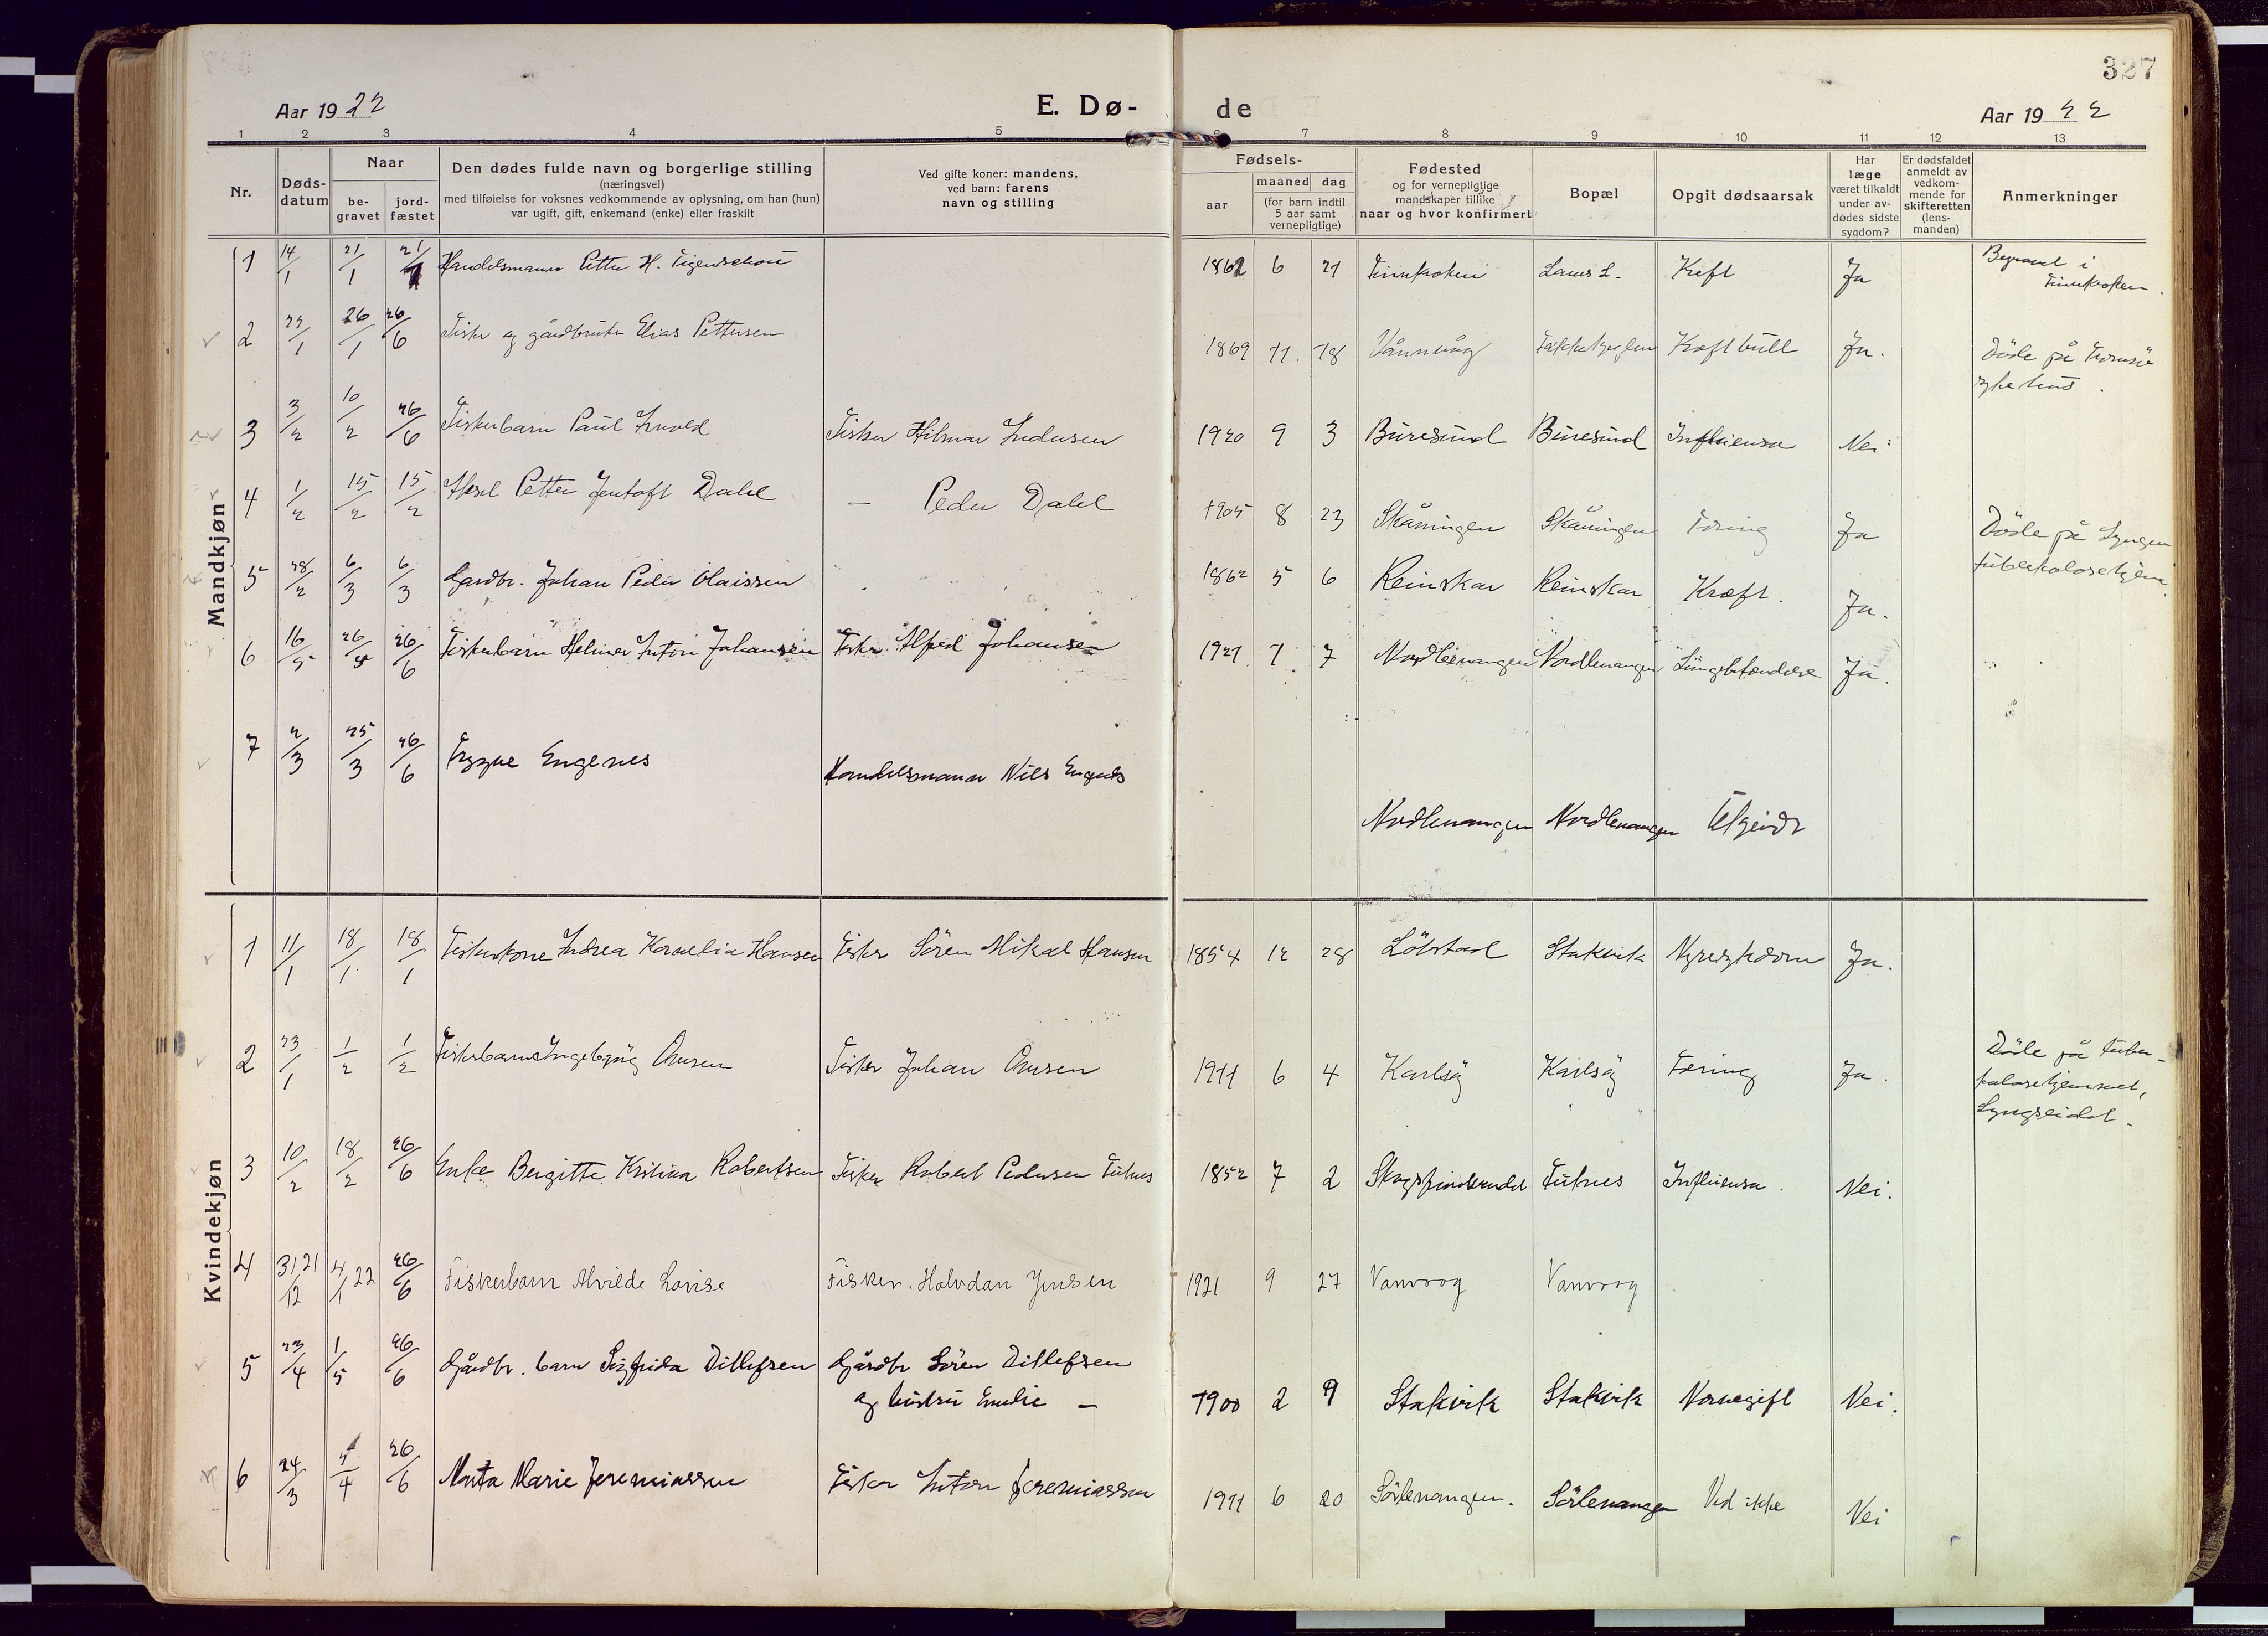 327
Aar 1922
E. Dø-
de
Aar 1922
1 2 3 4 5 6 7 8 9 10 11 12 13
Nr.
Døds-
datum
Naar
be-
gravet
jord-
fæstet
Den dødes fulde navn og borgerlige stilling
(næringsvei)
med tilføielse for voksnes vedkommende av oplysning, om han (hun)
var ugift, gift, enkemand (enke) eller fraskilt
Ved gifte koner: mandens,
ved barn: farens
navn og stilling
Fødsels-
aar
maaned dag
(for barn indtil
5 aar samt
vernepligtige)
Fødested
og for vernepligtige
mandskaper tillike
naar og hvor konfirmert
Bopæl
Opgit dødsaarsak
Har
læge
været tilkaldt
under av-
dødes sidste
sygdom?
Er dødsfaldet
anmeldt av
vedkom-
mende for
skifteretten
(lens-
manden)
Anmerkninger
Mandkjøn
1 14/1 21/1 21/1 Handelsmann Petter H. 1862 6 21 Finnkroken Kreft Ja Begravet i
Finnkroken.
2 22/1 26/1 26/6 Fisker og gårdbruker Elias Pettersen 1869 11. 18 Vånnvåg Ja. Döde på Tromsö
sykehus.
3 3/2 10/2 26/6 Fiskerbarn Paul Arnold Fisker Hilmar Andersen 1920 9 3 Buresund Buresund Influensa Nei
4 1/2 15/2 15/2 Aksel Petter Jentoft Dahl — Peder Dahl 1905 8 23 Skåningen Skåningen Tæring Ja Döde på Lyngen
tuberkulosehjem.
5 28/2 6/3 6/3 Gardbr. Johan Peder Olaissen 1862 5 6 Reinskar Reinskar Kræft. Ja.
6 16/5 26/4 26/6 Fiskerbarn Helmer Anton Johansen Fisker Alfred Johansen 1921 1 7 Nordlenangen Nordlenangen Lungebetændelse Ja.
7 2/3 25/3 26/6 Trygve Engenes Handelsmann Nils Engenes
Nordlenangen Nordlenangen
Kvindekjøn
1 11/1 18/1 18/1 Fiskerkone Andrea Kornelia Hansen Fisker Sören Mikal Hansen 1854 12 28 Stakvik Nyresykdom Ja.
2 23/1 1/2 1/2 Fiskerbarn Ingebjørg Fisker Johan 1911 6 4 Karlsöy Karlsöy Tæring Ja. Döde på tuber-
kulosehjemmet,
Lyngseidet.
3 10/2 18/2 26/6 Enke Bergitte Kristina Robertsen Fisker Robert Pedersen 1852 7 2 Influensa. Nei.
4 31/12 21 4/1 22 26/6 Fiskerbarn Alvilde Lovise Fisker. Halvdan Jensen 1921 9 27 Vanvaag Vanvaag
5 23/4 1/5 26/6 Gårdbr. barn Sigfrida Ditlefsen Gårdbr Sören Ditlefsen
og hustru Emelie — 1900 2 9 Stakvik Stakvik Nei.
6 24/3 26/6 Marta Marie Jeremiassen Fisker Anton Jeremiassen 1911 6 20 Sörlenangen. Sörlenangen Ved ikke Nei